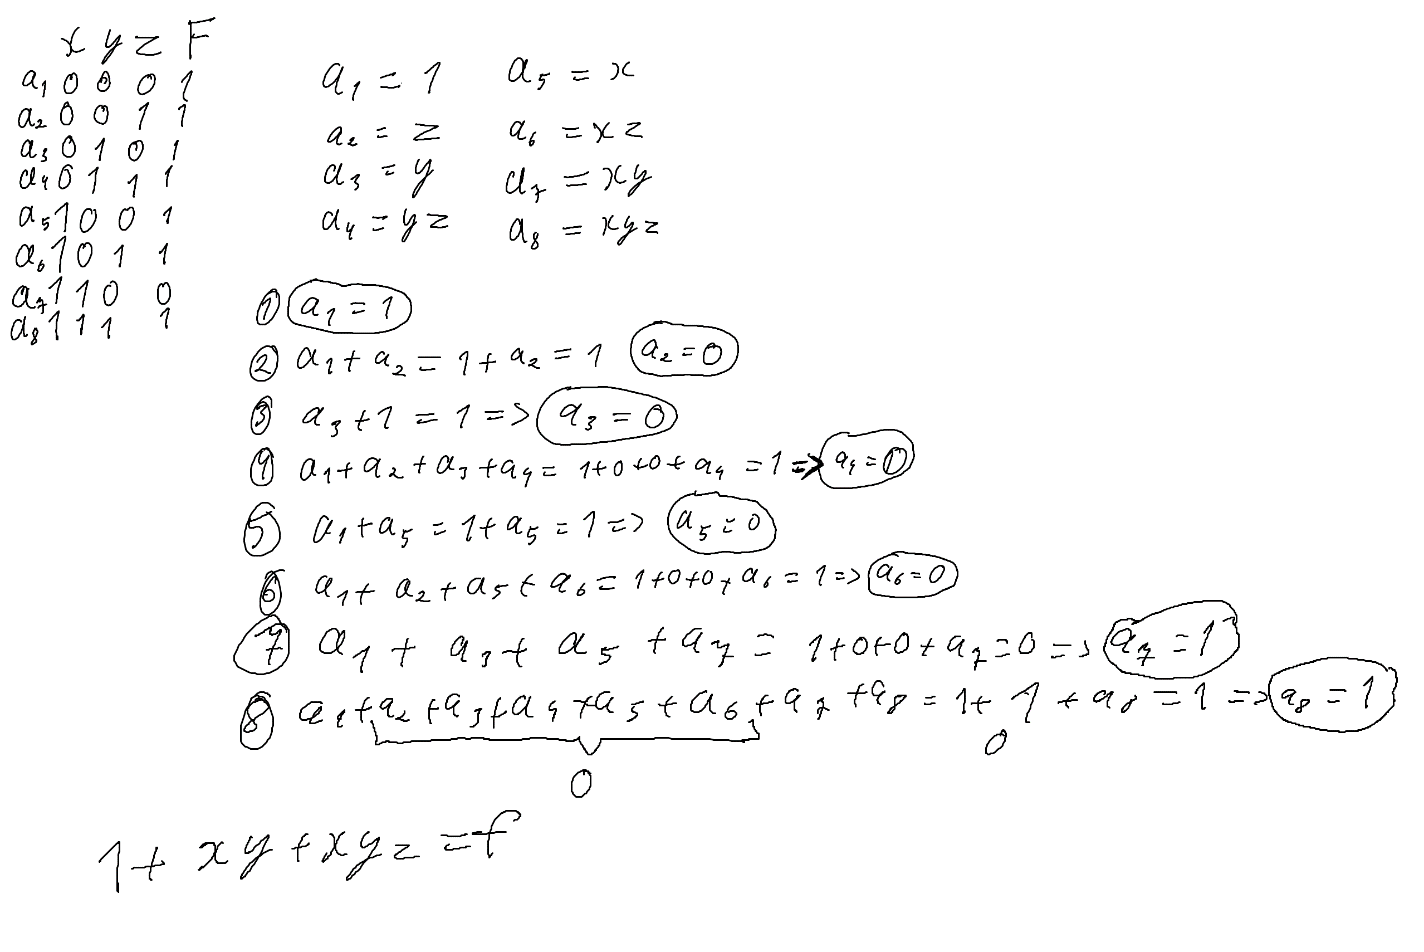 x y z F
a₁ 0 0 0 1
a₂ 0 0 1 1
a₃ 0 1 0 1
a₄ 0 1 1 1
a₅ 1 0 0 1
a₆ 1 0 1 1
a₇ 1 1 0 0
a₈ 1 1 1 1
a₁ = 1 a₅ = x
a₂ = z a₆ = xz
a₃ = y a₇ = xy
a₄ = yz a₈ = xyz
① a₁ = 1
② a₁ + a₂ = 1 + a₂ = 1 a₂ = 0
③ a₃ + 1 = 1 => a₃ = 0
④ a₁ + a₂ + a₃ + a₄ = 1+0+0+a₄ = 1 => a₄ = 0
⑤ a₁ + a₅ = 1 + a₅ = 1 => a₅ = 0
⑥ a₁ + a₂ + a₅ + a₆ = 1+0+0+a₆ = 1 => a₆ = 0
⑦ a₁ + a₃ + a₅ + a₇ = 1+0+0+a₇ = 0 => a₇ = 1
⑧ a₁ + a₂ + a₃ + a₄ + a₅ + a₆ + a₇ + a₈ = 1 + 1 + a₈ = 1 => a₈ = 1
0 0
1 + xy + xyz = f